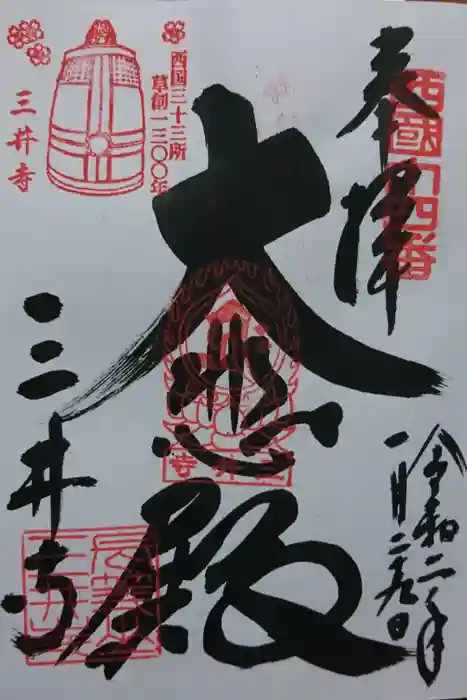 奉拝
西國十四番
西国三十三所
草創一三〇〇年
三井寺
大悲殿
三井寺
令和二年
一月二十九日
三井寺